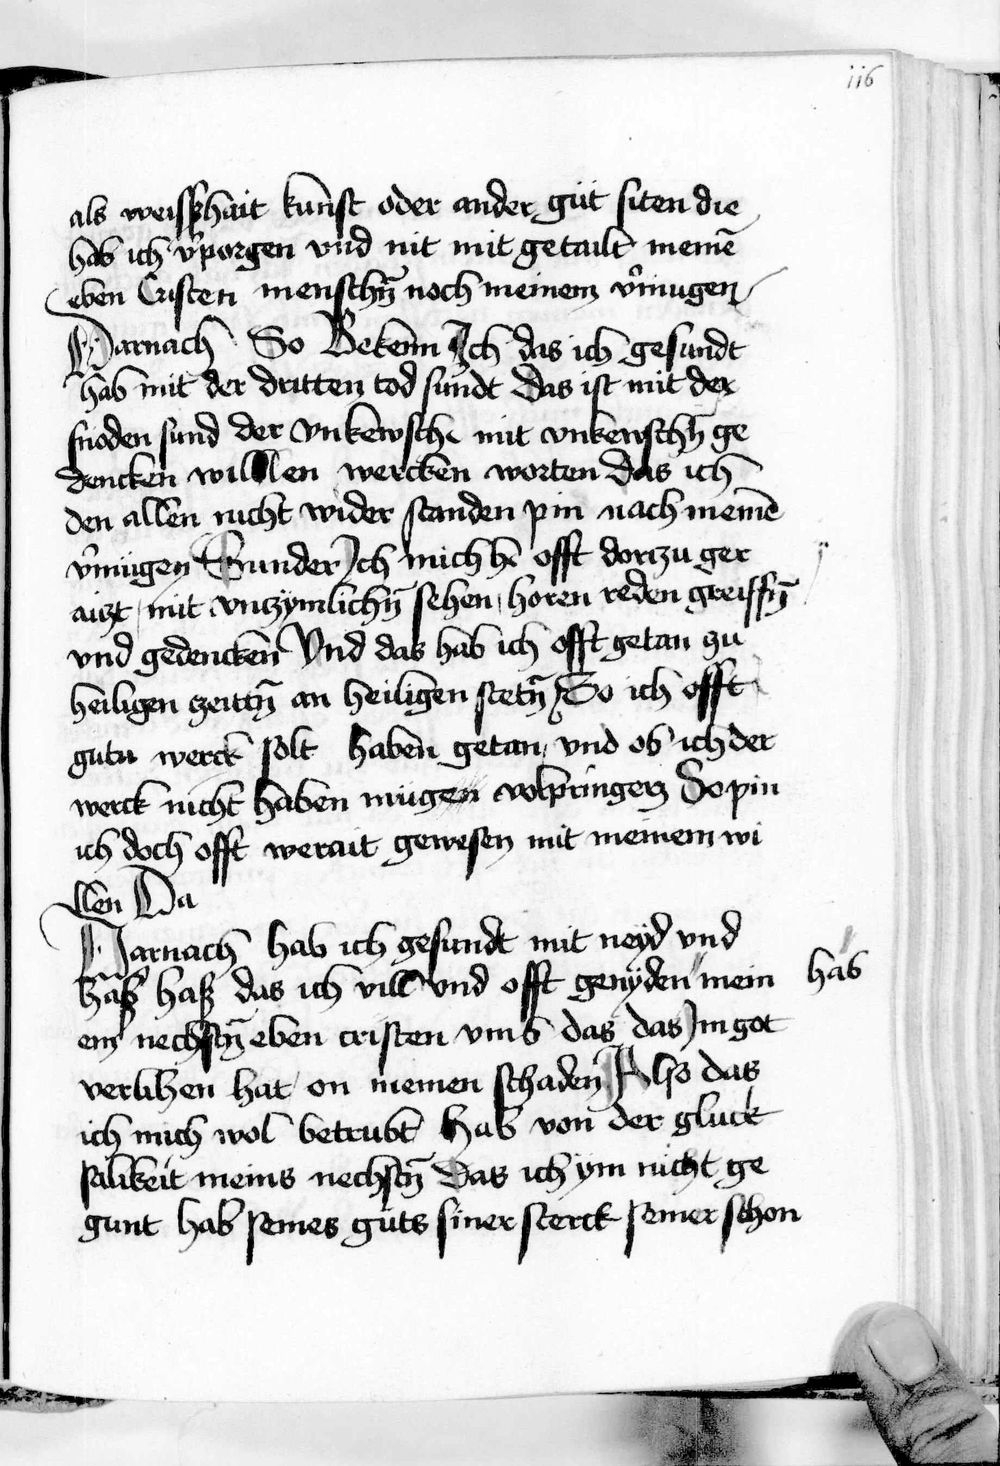 116
als weisshait kunst oder ander güt siten die
hab ich v̉porgen vnd nit mit getailt meinē
eben Cristen menschn̄ noch meinem v̉mugen
Darnach So Bekenn Ich das ich gesundt
hab mit der dritten tod sundt Das ist mit der
snoden sund der vnkewsch mit vnkewschn̄ ge
dencken willen wercken worten Das ich
den allen nicht wider standen pin nach meinē
v̉mügen Sunder Ich mich h offt dorczu ger
aiczt mit vnczymlichn̄ sehen horen reden greiffn̄
vnd gedencken Vnd das hab ich offt getan zu
heiligen zeittn̄ an heiligen stetn̄ So ich offt
gutu werck solt haben getan vnd ob ich der
werck nicht haben mügen volpringen So pin
ich doch offt werait gewesen mit meinem wi
llen Da
Darnach hab ich gesundt mit neyd vnd
haß das ich vill vnd offt genyden mein hab
em nechstn̄ eben cristen vmb das das Im got
verlihen hat on meinen schaden Also das
ich mich wol betrubt hab von der gluck
salikeit meins nechstn̄ Das ich ym nicht ge
gunt hab seines güts siner sterck seiner schon